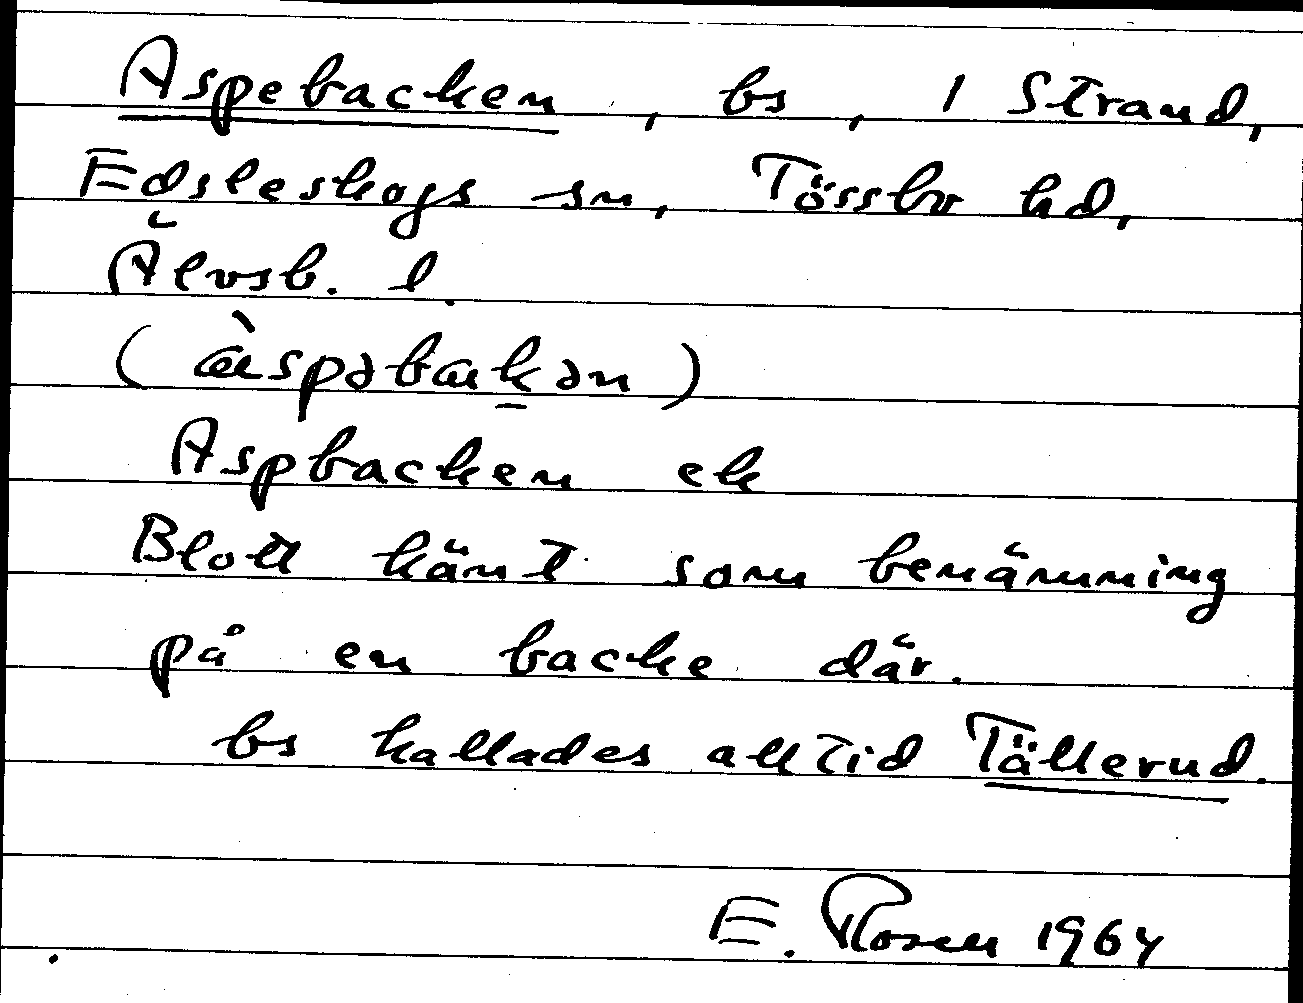 Aspebacken, bs, 1 Strand,
Edsleskogs sn, Tössbo hd,
Älvsb. l.
(àspəbak̲ən)
Aspbacken ek
Blott känt som benämning
på en backe där.
bs kallades alltid Tällerud.
E. Rosen 1964